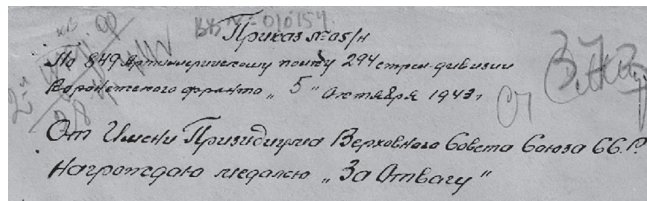 ВВ № 010154
Приказ № 05/н
По 849 артиллерийскому полку 294 стрел. дивизии
Воронежского фронта „5" Октября 1943 г
От Имени Призидиума Верховного Совета Союза ССР
Награждаю медалью „За Отвагу"